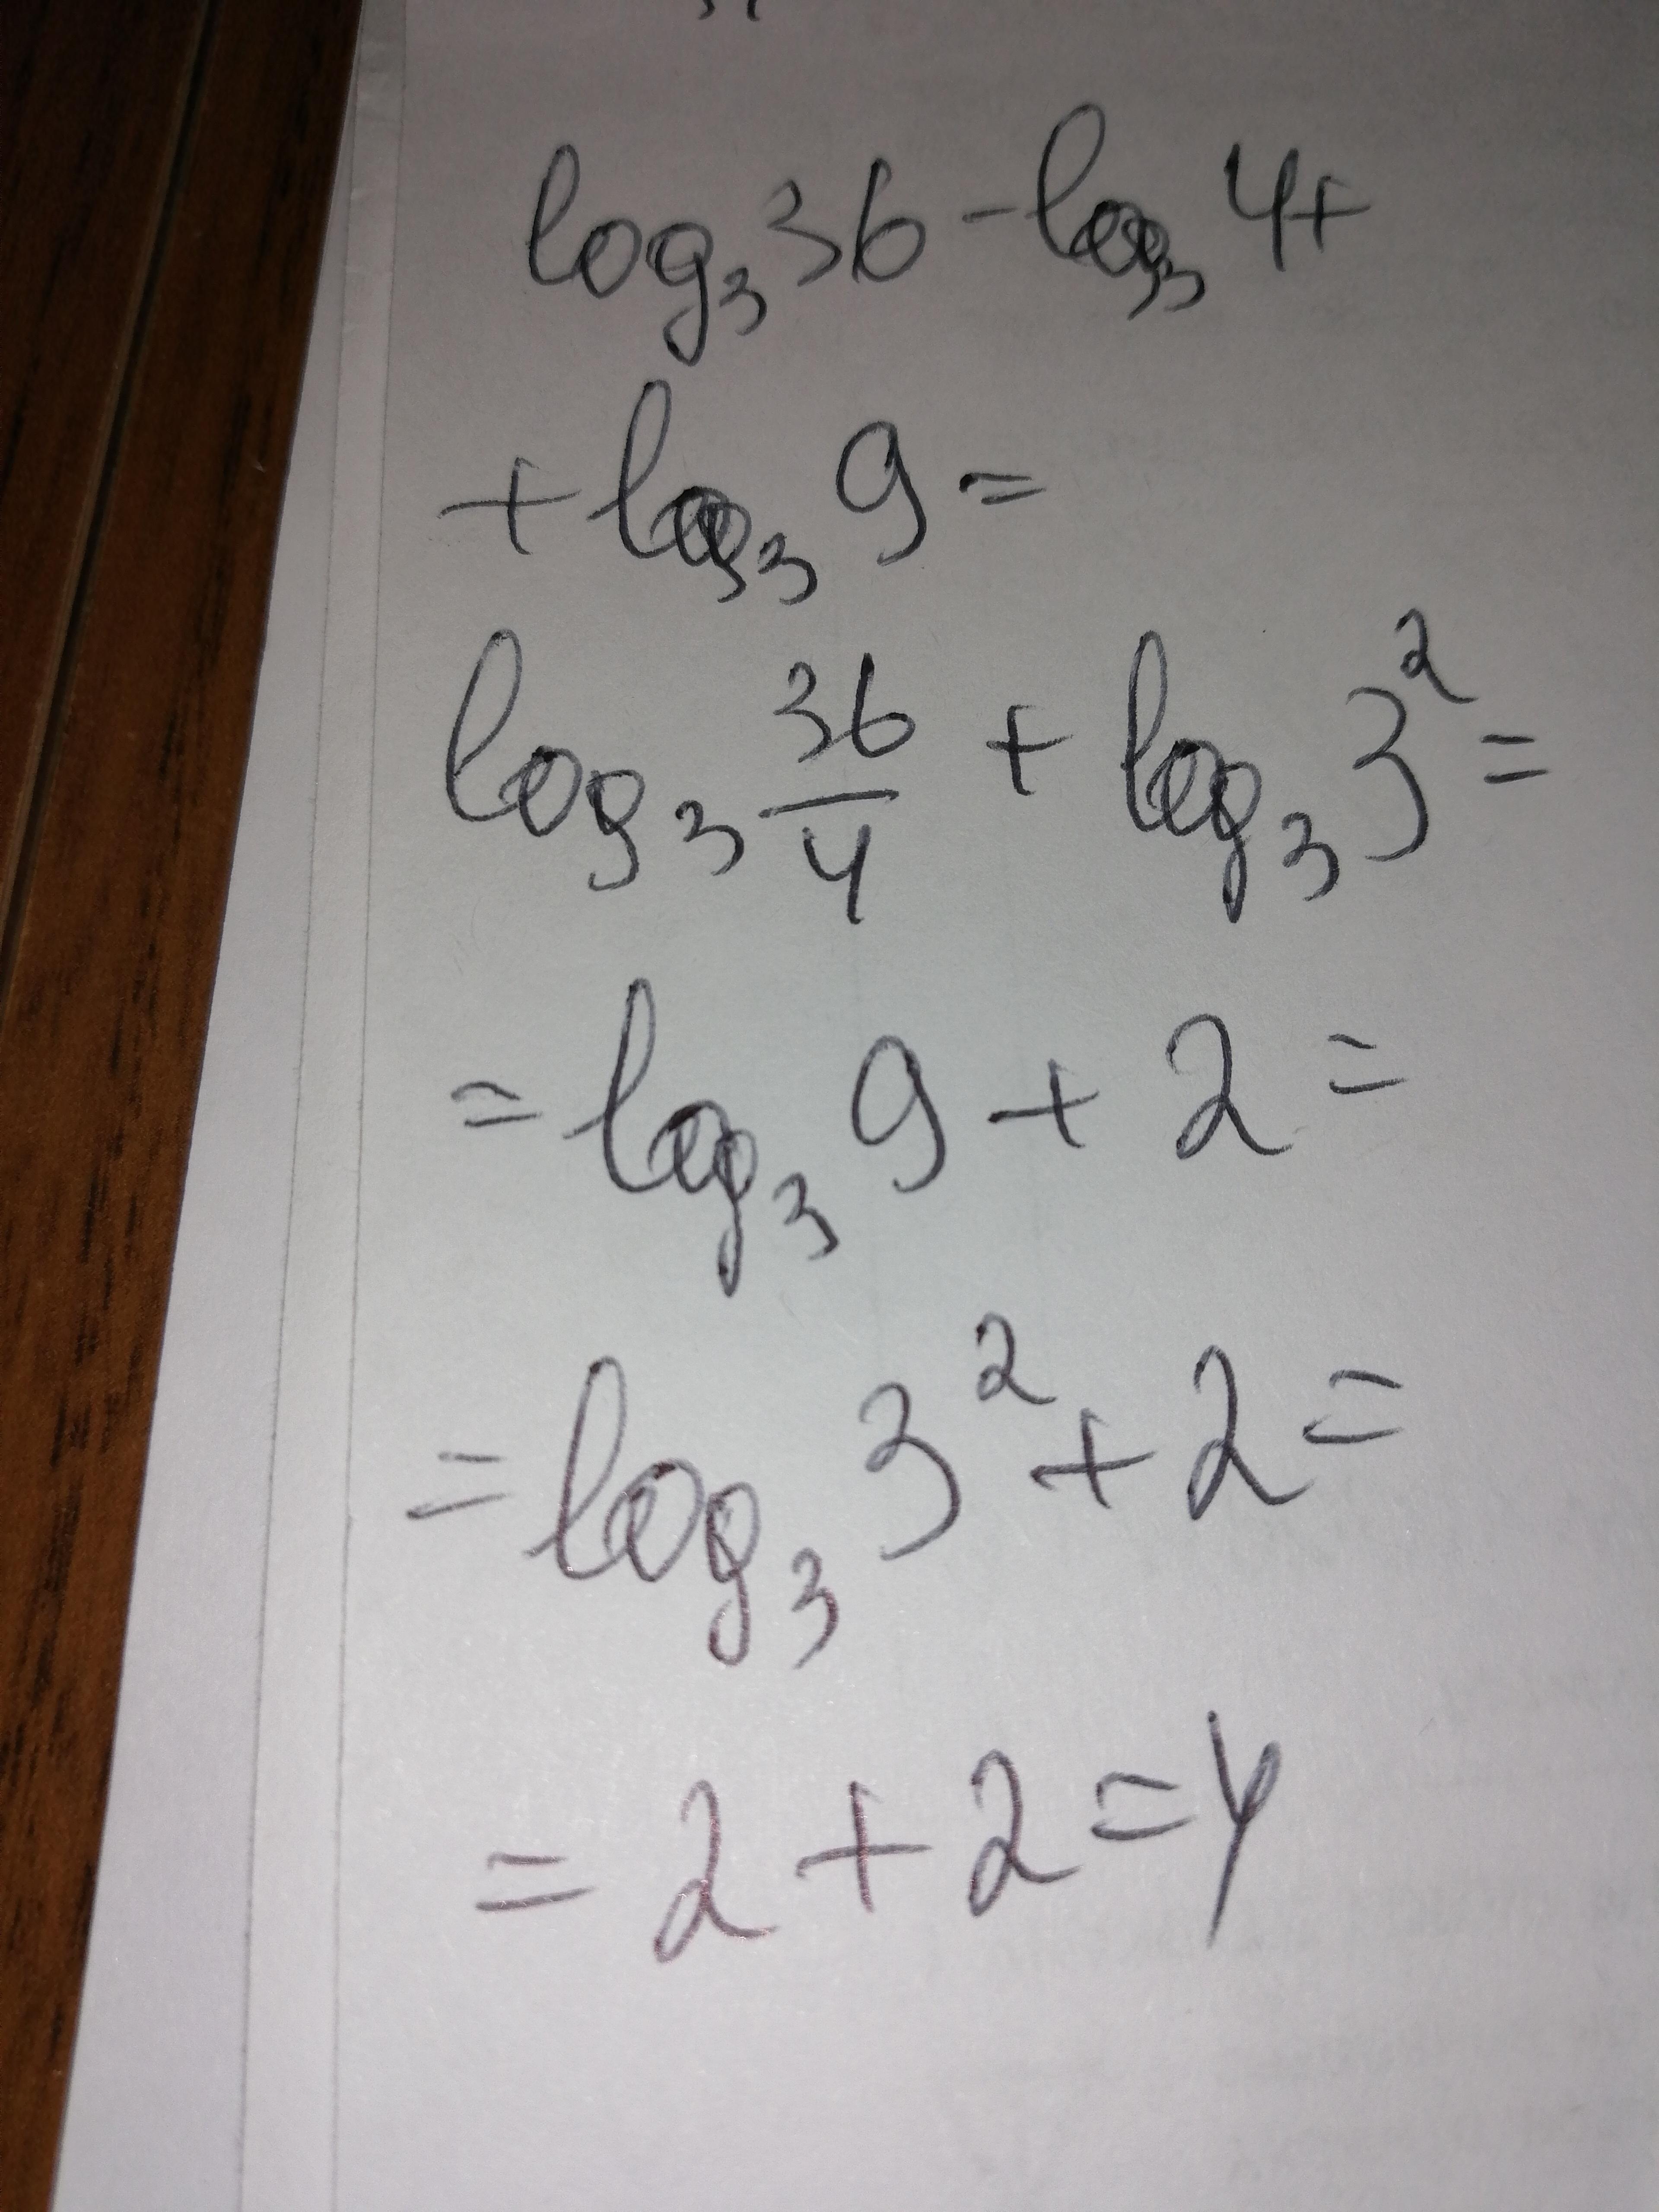 log₃36 - log₃4+
+ log₃9 =
log₃ 36/4 + log₃3² =
= log₃9 + 2 =
= log₃3² + 2 =
= 2 + 2 = 4